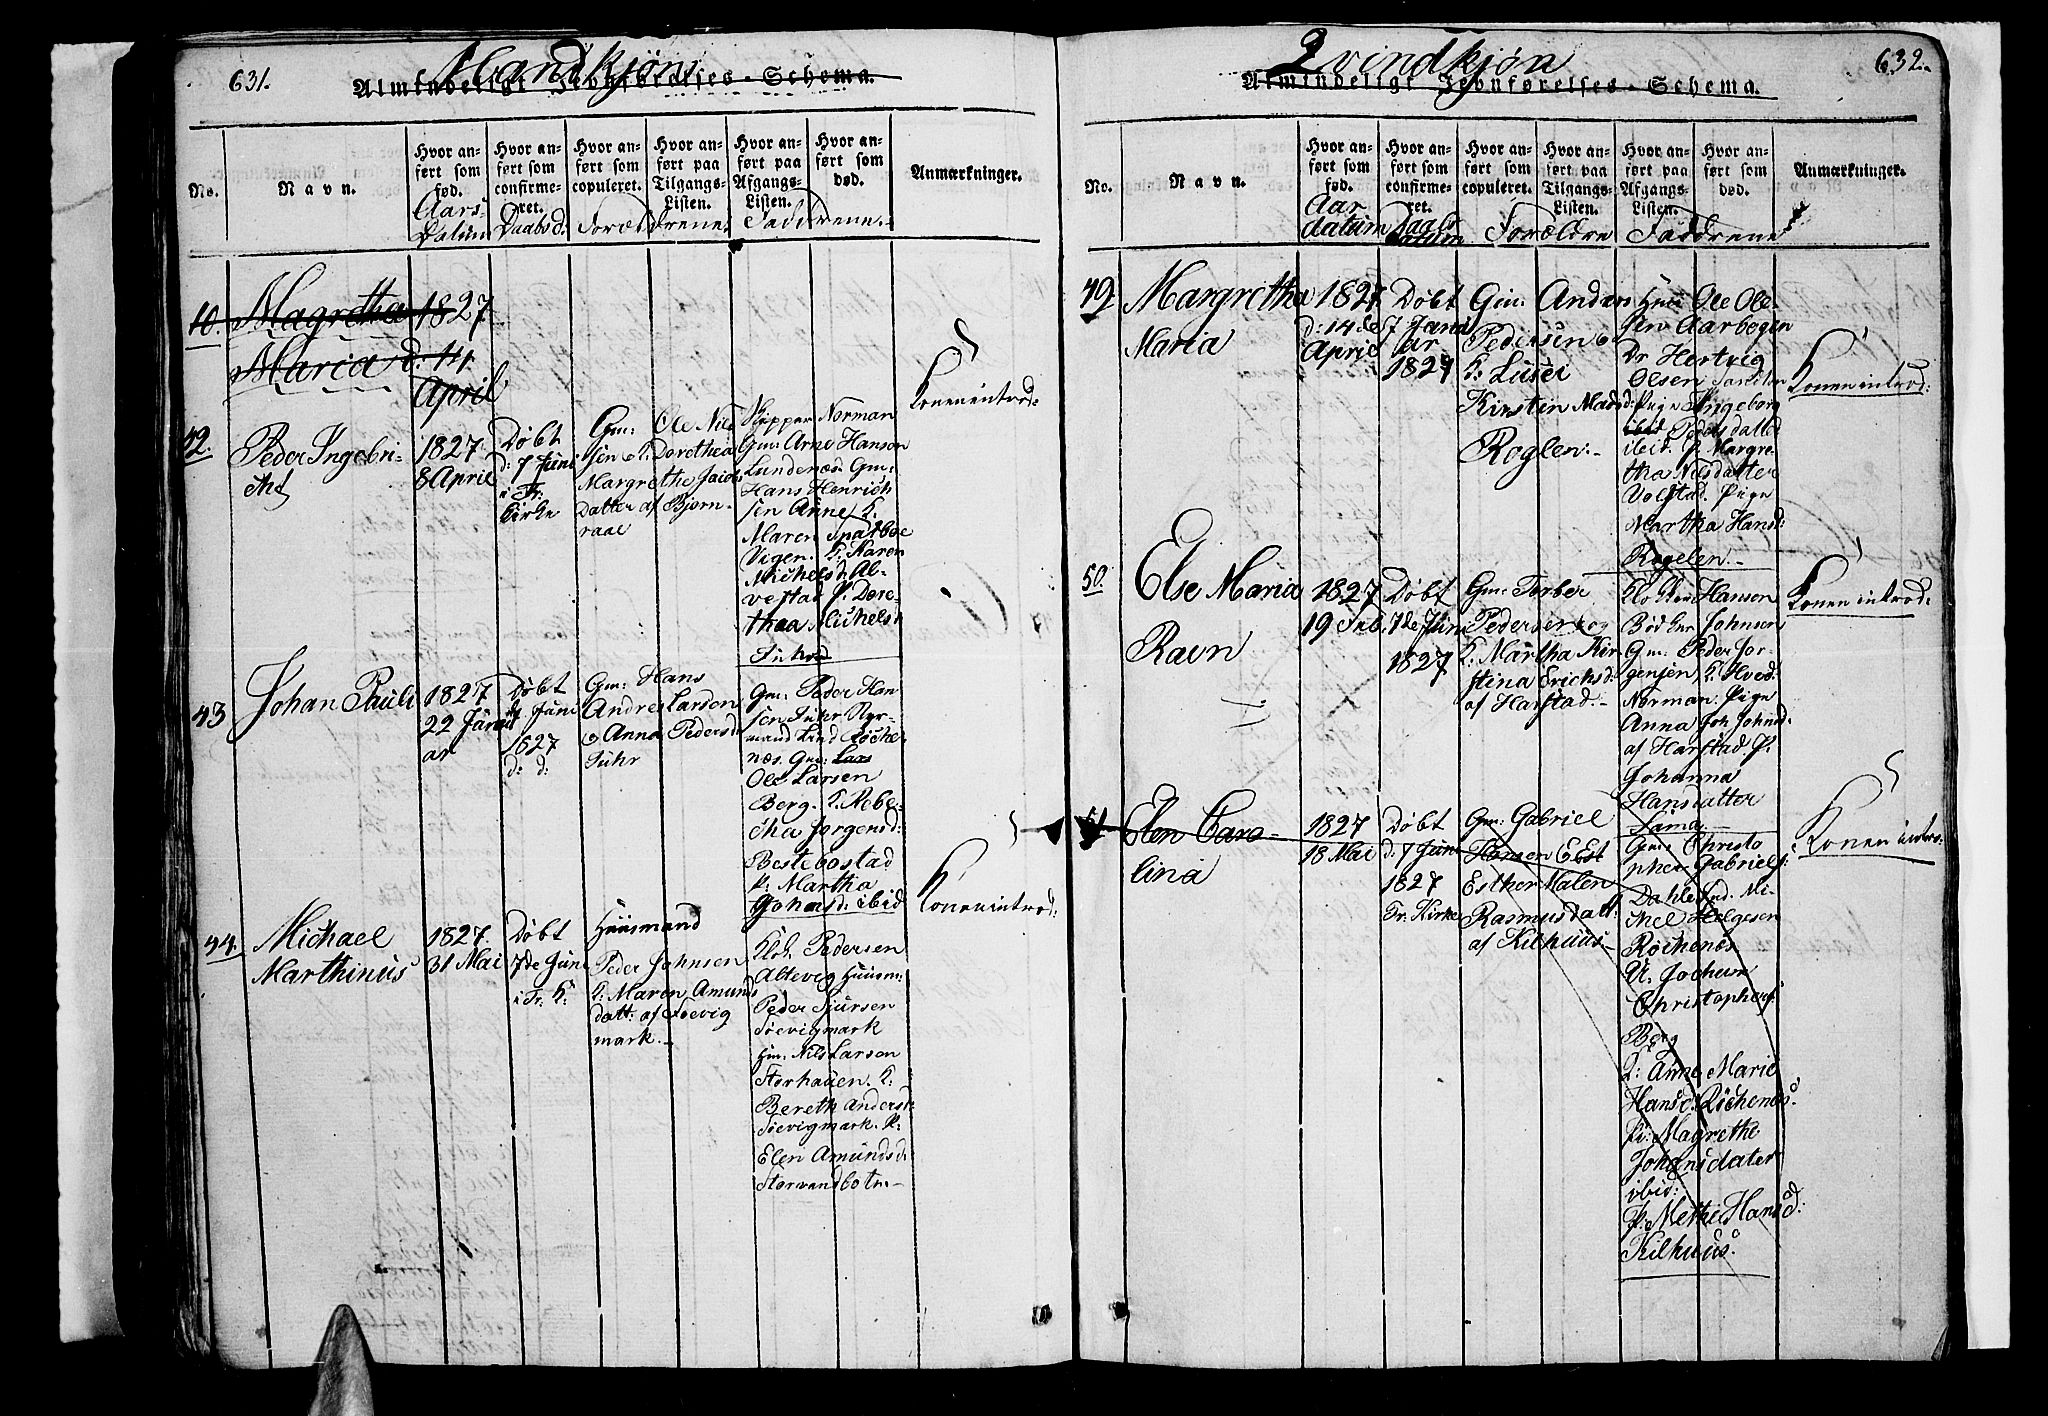 631.
Mandkjøn
Almindeligt Jevnførelses-Schema.
No.
Navn.
Hvor an-
ført som
fød.
Aars
Datum
Hvor an-
ført som
confirme-
ret.
Daabsd:
Hvor an-
ført som
copuleret.
Hvor an-
ført paa
Tilgangs-
Listen.
Forældrene
Hvor an-
ført paa
Afgangs-
Listen.
Hvor an-
ført som
død.
Faddrene.
Anmærkninger.
10. Magretha 1827
Maria d. 14
April
42.
Peder Ingebri-
cht
1827
8 April
Døbt
d: 7 Juni
i Tr:
Kirke
Gm: Ole Nils
sen o K. Dorothea
Margrethe Jacobs
Datter af Bjørn-
raae
Skipper Norman
Gm: Arne Hanson
Lundenæs. Gm:
Hans Henrich
sen Anne, K.
Maren Sparboe
Vigen. K: Karen
Michelsd: Al-
vestad P: Dore-
thea Michelsd
Fuhr
Konen introd:
43
Johan Pauli
1827
22 Janu
ar
Døbt
7 Juni
1827
d: d:
Gm: Hans
Andreas Larson
o Anna Pedersd
Fuhr
Gm: Peder Han
sen Fuhr Nor-
mand Lind Røche-
næs. Gm: Lars
Ole Larsen
Berg. K. Rebe-
cha Jørgensd:
Bestebostad
P: Martha
Johansd: ibid
Konen introd:
44.
Michael
Marthinus
1827.
31 Mai
Døbt
7de Juni
i Tr: K:
Huusmand
Peder Johnsen
K: Maren Amunds
datt: af Søevig
mark.-
Klok. Pedersen
Altevig Huusm:
Peder Sjursen
Søevigmark
Hm: Nils Larson
Storhauen. K:
Bereth Anders:
Søevigmark. P:
Elen Amundsd:
Storvandbotn.-
632.
Qvindkjøn
Almindeligt Jevnførelses-Schema.
No.
Navn.
Hvor an-
ført som
fød.
Aar
datum
Hvor an-
ført som
confirme-
ret.
Daabs
Datum
Hvor an-
ført som
copuleret.
Hvor an-
ført paa
Tilgangs-
Listen.
Forældre
Hvor an-
ført paa
Afgangs-
Listen.
Hvor an-
ført som
død.
Faddrene
Anmærkninger.
49
Margretha
Maria
1827.
d: 14de
April
Døbt
Janu
ar
1827
Gm: Anders
Pedersen o
K: Lusei
Kirstin Madsd:
Roglen.-
Huus Ole Ole-
sen Aarbogen
Dr Hertvig
Olsen
Pige Ingeborg
ibid Pedersdatter
ibid. P. Margre-
tha Nilsdatter
Volstad. Pige
Martha Hansd:
Rogelen.-
Konen introd:
50.
Else Maria
Ravn
1827
19 Feb.
Døbt
7de Juni
1827
Gm: Torber
Pedersen og
K: Martha Kir
stina Erichsd:
af Harstad.-
Klokker Hanson
Bødker Johnsen
Gm: Peder Jor-
gensen K: Hved:
Norman. Pige
Anna Joh Johnsd:
af Harstad P.
Johanna
Hansdatter
Sama.-
Konen introd:
51
Elen Caro-
lina
1827
18 Mai
Døbt
d: 7 Juni
1827
Tr: Kirke
Gm: Gabriel
Hansen E Est
Esther Malen
Rasmusdatt:
af Kilhuus-
Gm: Christo
pher Gabriels:
Dahle. Gnd. Mi-
chel Helgesen
Røchenæs
U. Jochum
Christophers:
Berg
K: Anne Marie
Hansd: Røchenæs.
Pi: Magrethe
Johansdater
ibid:
P: Methe Hansd:
Kilhuus.
Konen introd: